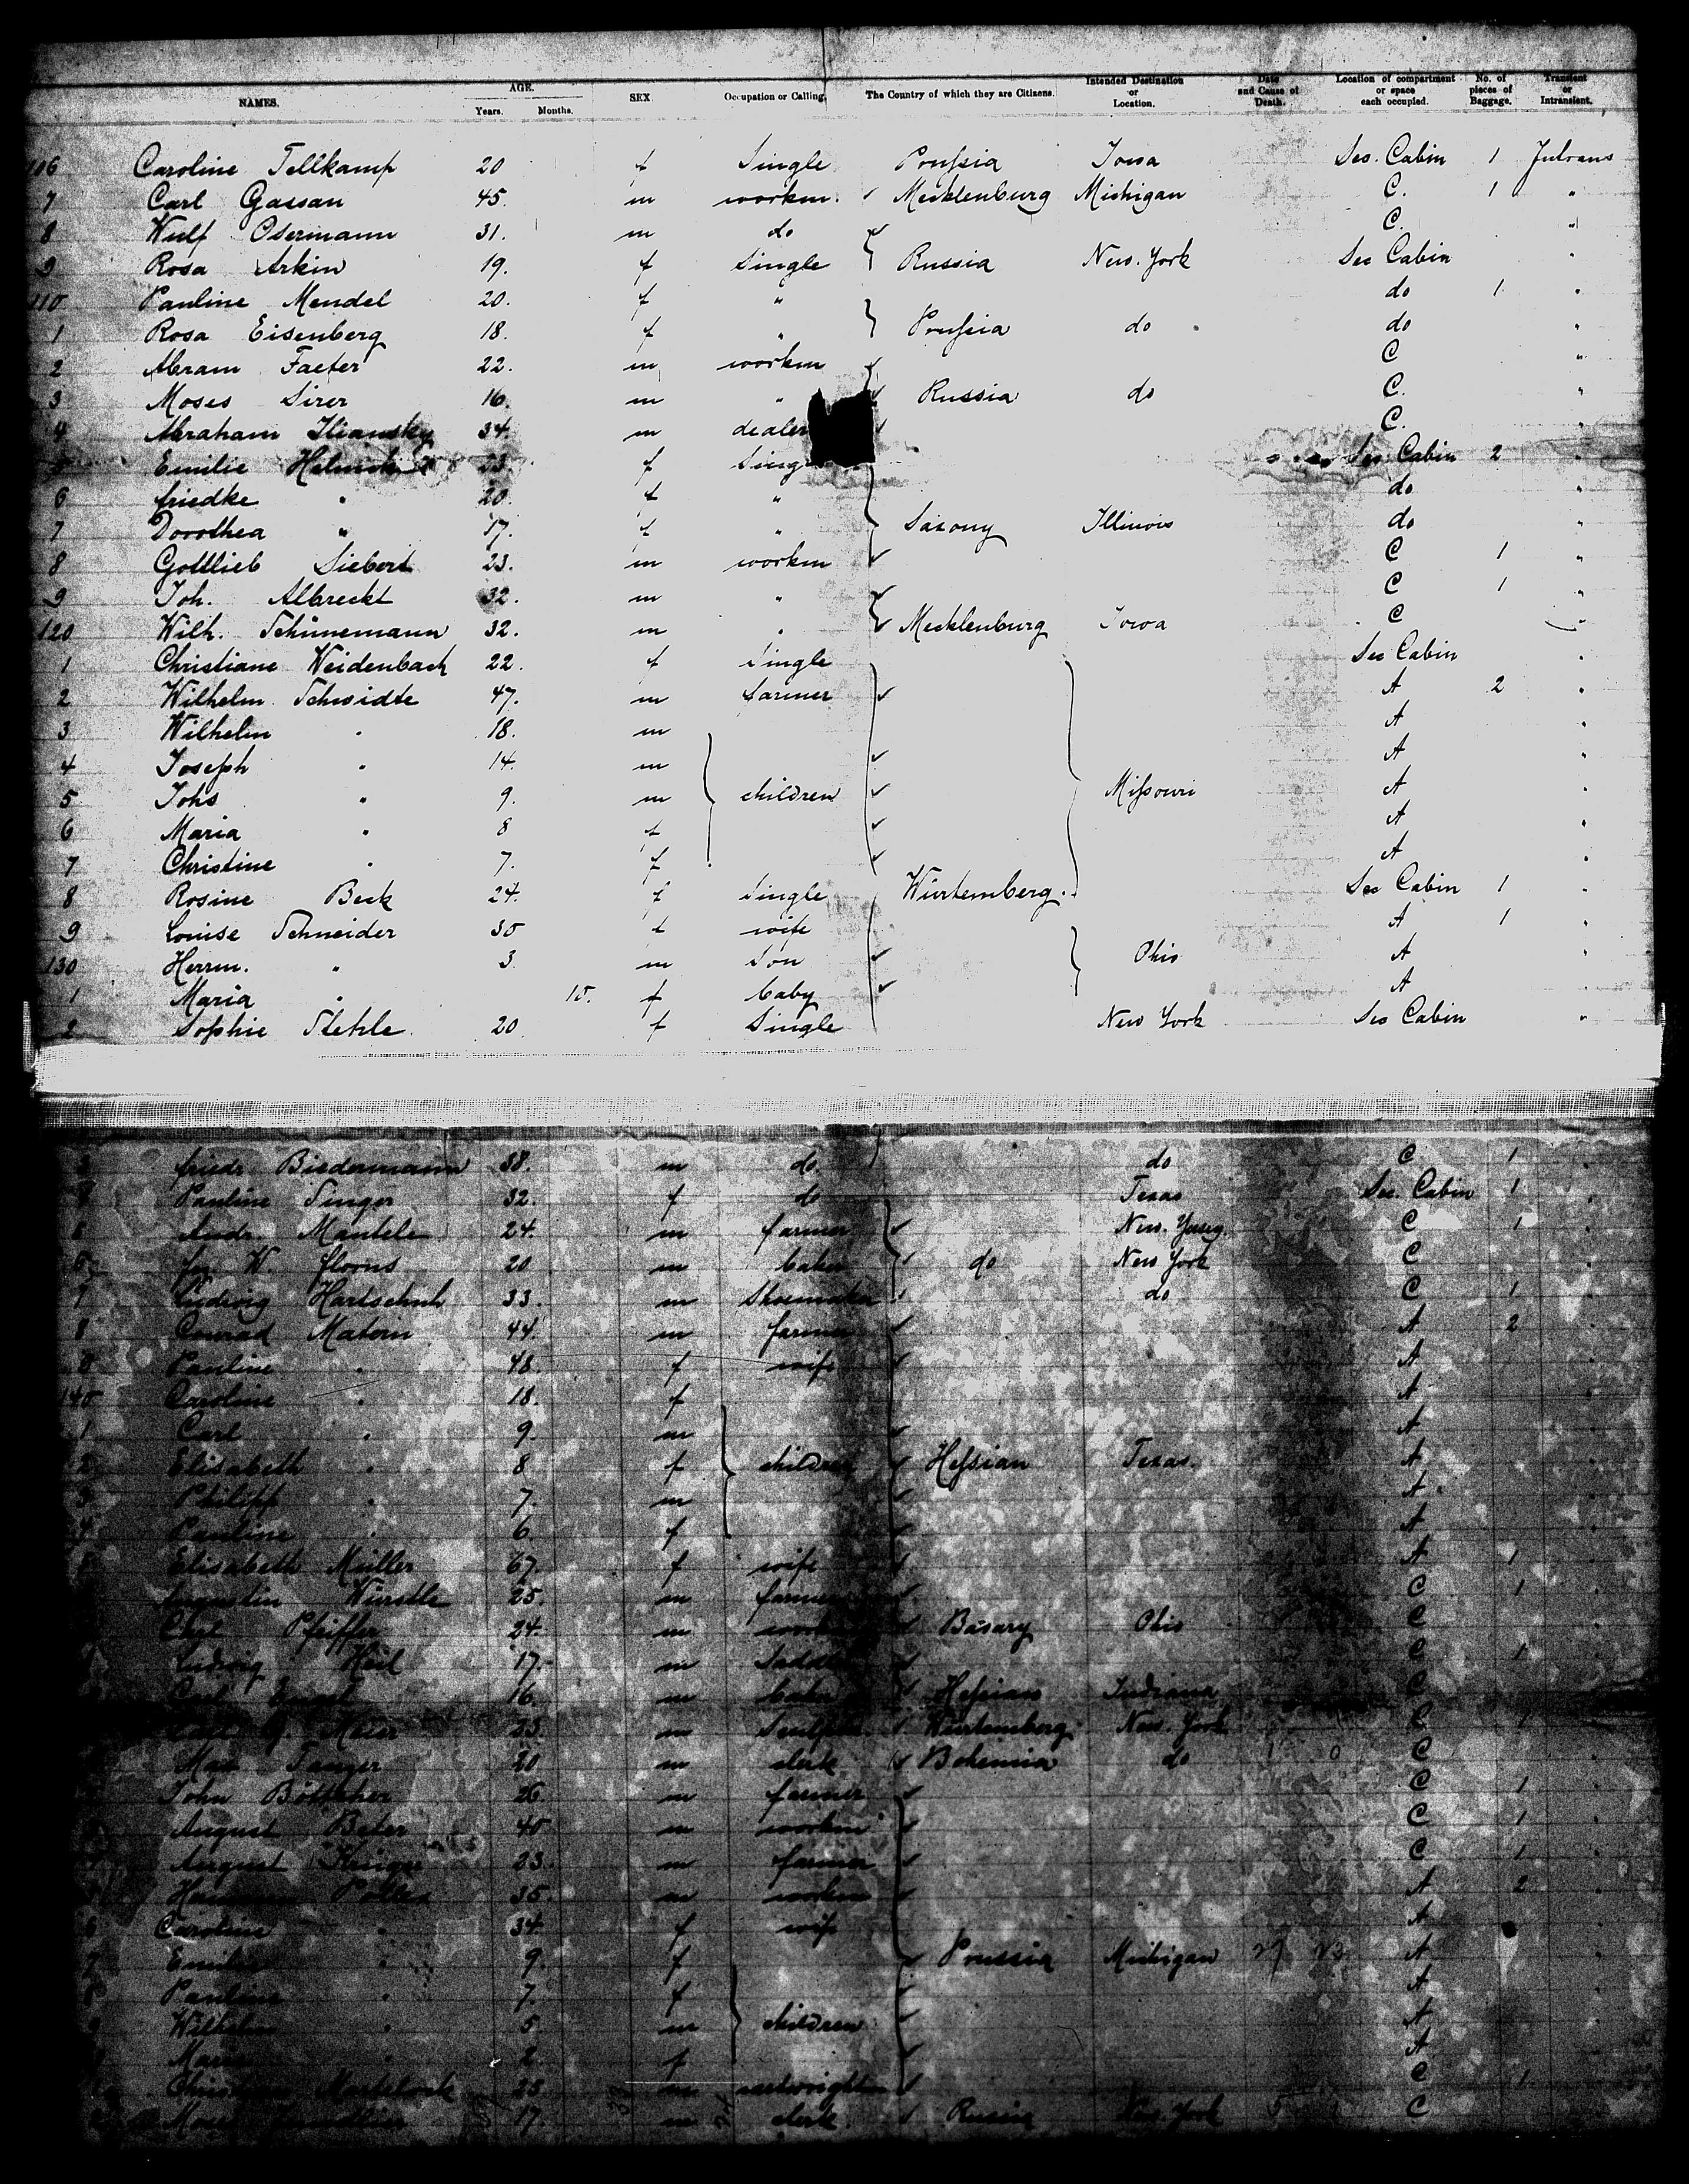 NAMES. AGE. Years. Months. SEX. Occupation or Calling. The Country of which they are Citizens. Intended Destination or Location. Date and Cause of Death. Location of compartment or space each occupied. No. of pieces of Baggage. Transient or Intransient.
106 Caroline Tellkamp 20 f Single Prussia Iowa Sec. Cabin 1
7 Carl Gassan 45. m workm. Mecklenburg Michigan C. 1 "
8 Wulf Osermann 31. m do C. "
9 Rosa Arkin 19. f Single Russia New. York Sec Cabin "
110 Pauline Mendel 20. f " do 1 "
1 Rosa Eisenberg 18. f " Prussia do do "
2 Abram Faeter 22. m workm C "
3 Moses Sirer 16. m " Russia do C. "
4 Abraham 34. m dealer C. "
5 Emilie 23. f Sing Sec. Cabin 2 "
6 friedke " 20. f " do "
7 Dorothea " 17. f " Saxony Illinois do "
8 Gottlieb Siebert 23. m workm C 1 "
9 Joh. Albrecht 32. m " C 1 "
120 Wilh. Schünemann 32. m " Mecklenburg Iowa C "
1 Christiane Weidenbach 22. f Single Sec Cabin "
2 Wilhelm Schwidte 47. m farmer A 2 "
3 Wilhelm " 18. m A "
4 Joseph " 14. m A "
5 Johs " 9. m children Missouri A "
6 Maria " 8 f A "
7 Christine " 7. f A "
8 Rosine Beck 24. f Single Würtemberg. Sec Cabin 1 "
9 Louise Schneider 30 f wife A 1 "
130 Herrm. " 3. m Son Ohio A "
1 Maria " 10. f baby A "
2 Sophie Stehle. 20. f Single New York Sec Cabin "
3 friedr. Biedermann 38. m do do C 1 "
4 Pauline Singer 32. f do Texas Sec. Cabin 1 "
5 Andr. Mantele 24. m farmer New. Yersey. C 1 "
6 W. floros 20 m baker do New York C "
7 Ludwig Hartschuh 33. m Shoemaker do C 1 "
8 Conrad Matern 44. m farmer A 2 "
9 Pauline " 48. f wife A "
140 Caroline " 18. f A "
1 Carl " 9. m A "
2 Elisabeth " 8 f children Hessian Texas. A "
3 Philipp " 7. m A "
4 Pauline " 6. f A "
5 Elisabeth Müller 67. f wife A 1 "
Augustin Würstle 25. m farmer C 1 "
Pfeiffer 24. m Bavary Ohio C "
Ludwig Heil 17. m Saddler C 1 "
Carl 16. m baker Hessian Indiana C "
Meier 23. m Würtemberg New. York C 1 "
Max 20 m clerk Bohemia do C "
John Böttcher 26. m farmer C 1 "
August 40 m workm C 1 "
August Krüger 23. m farmer C 1 "
35. m workm A 2 "
6 Caroline " 34. f wife A "
7 Emilie " 9. f Prussia Michigan A "
8 Pauline " 7. f A "
9 Wilhelm " 5. m children A "
Maria " 2. f A "
25 m C 1 "
Moses 17. m clerk. Russia New. York C